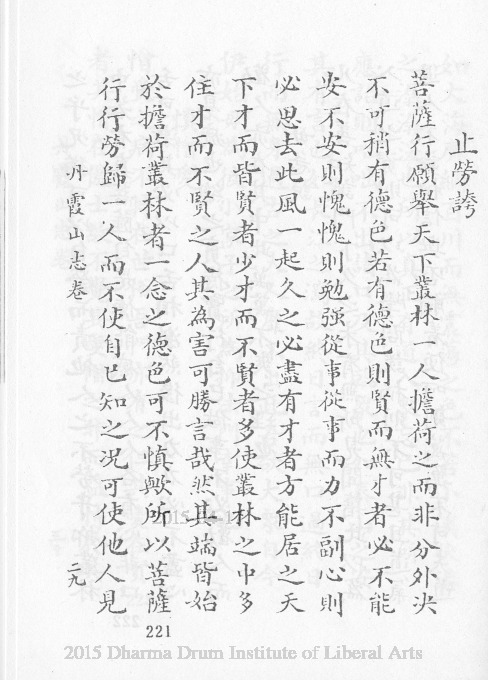 止勞誇
菩薩行願舉天下叢林一人擔荷之而非分外決
不可稍有德色若有德色則賢而無才者必不能
安不安則愧愧則勉强從事從事而力不副心則
必思去此風一起久之必盡有才者方能居之天
下才而皆賢者少才而不賢者多使叢林之中多
住才而不賢之人其為害可勝言哉然其端皆始
於擔荷叢林者一念之德色可不慎歟所以菩薩
行行勞歸一人而不使自已知之況可使他人見
丹霞山志卷
二九
221
2015 Dharma Drum Institute of Liberal Arts